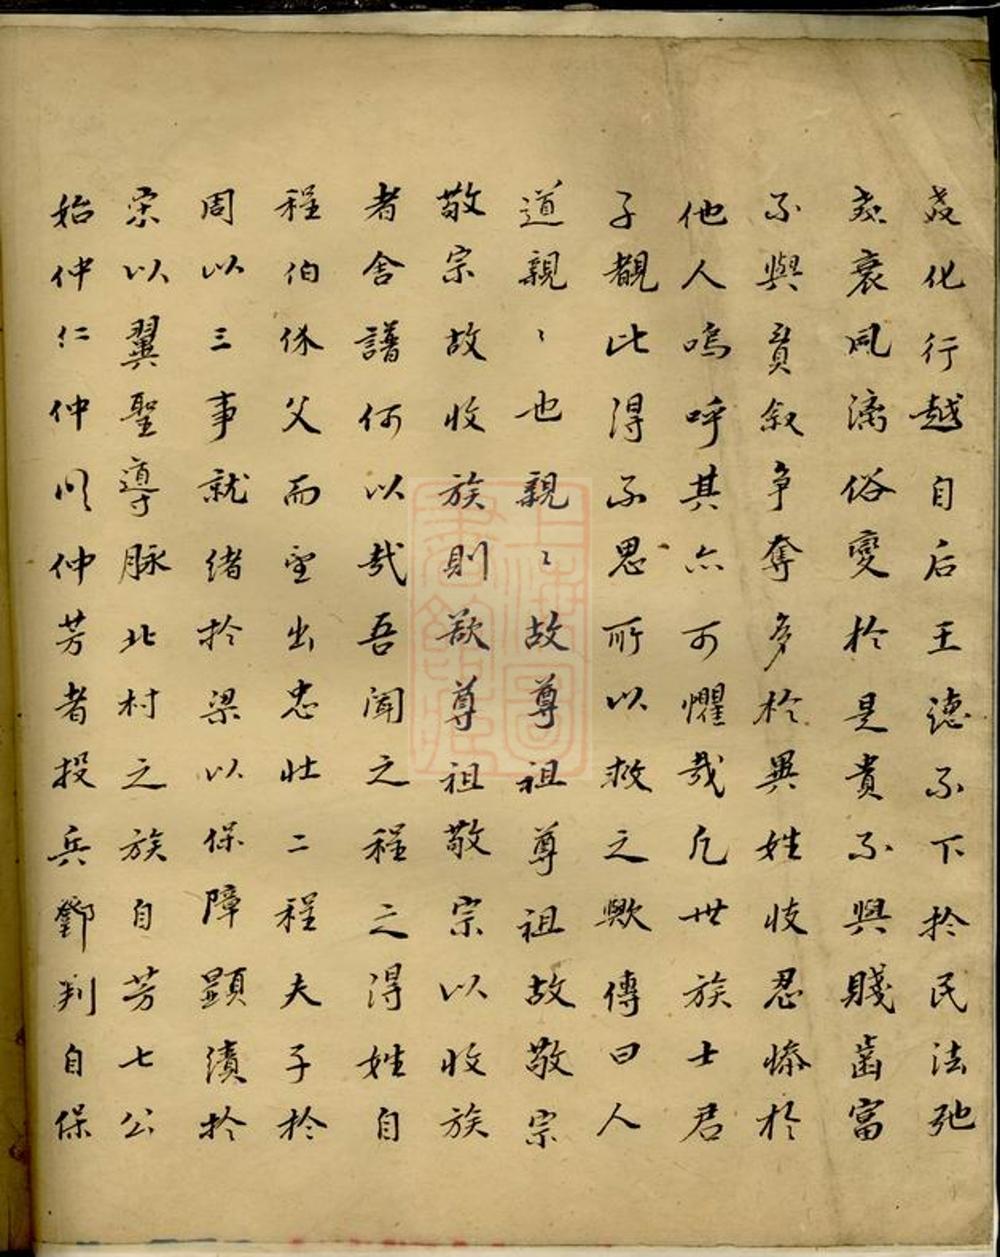 化行越自后王德不下扵民法弛
衰風漓俗變扵是貴不興賤齒富
不與貧叙争奪多扵異姓忮忍慘扵
他人嗚呼其亦可懼哉凡世族士君
子觀此得不思所以救之歟傳曰人
道親〻也親〻故尊祖尊祖故敬宗
敬宗故收族則欲尊祖敬宗以收族
者舍譜何以哉吾聞之程之得姓自
程伯休父而聖出忠壯二程夫子扵
周以三事就緒扵梁以保障顕漬扵
宋以翼聖導脉北村之族自芳七公
始仲仁仲以仲芳者投兵鄧判自保